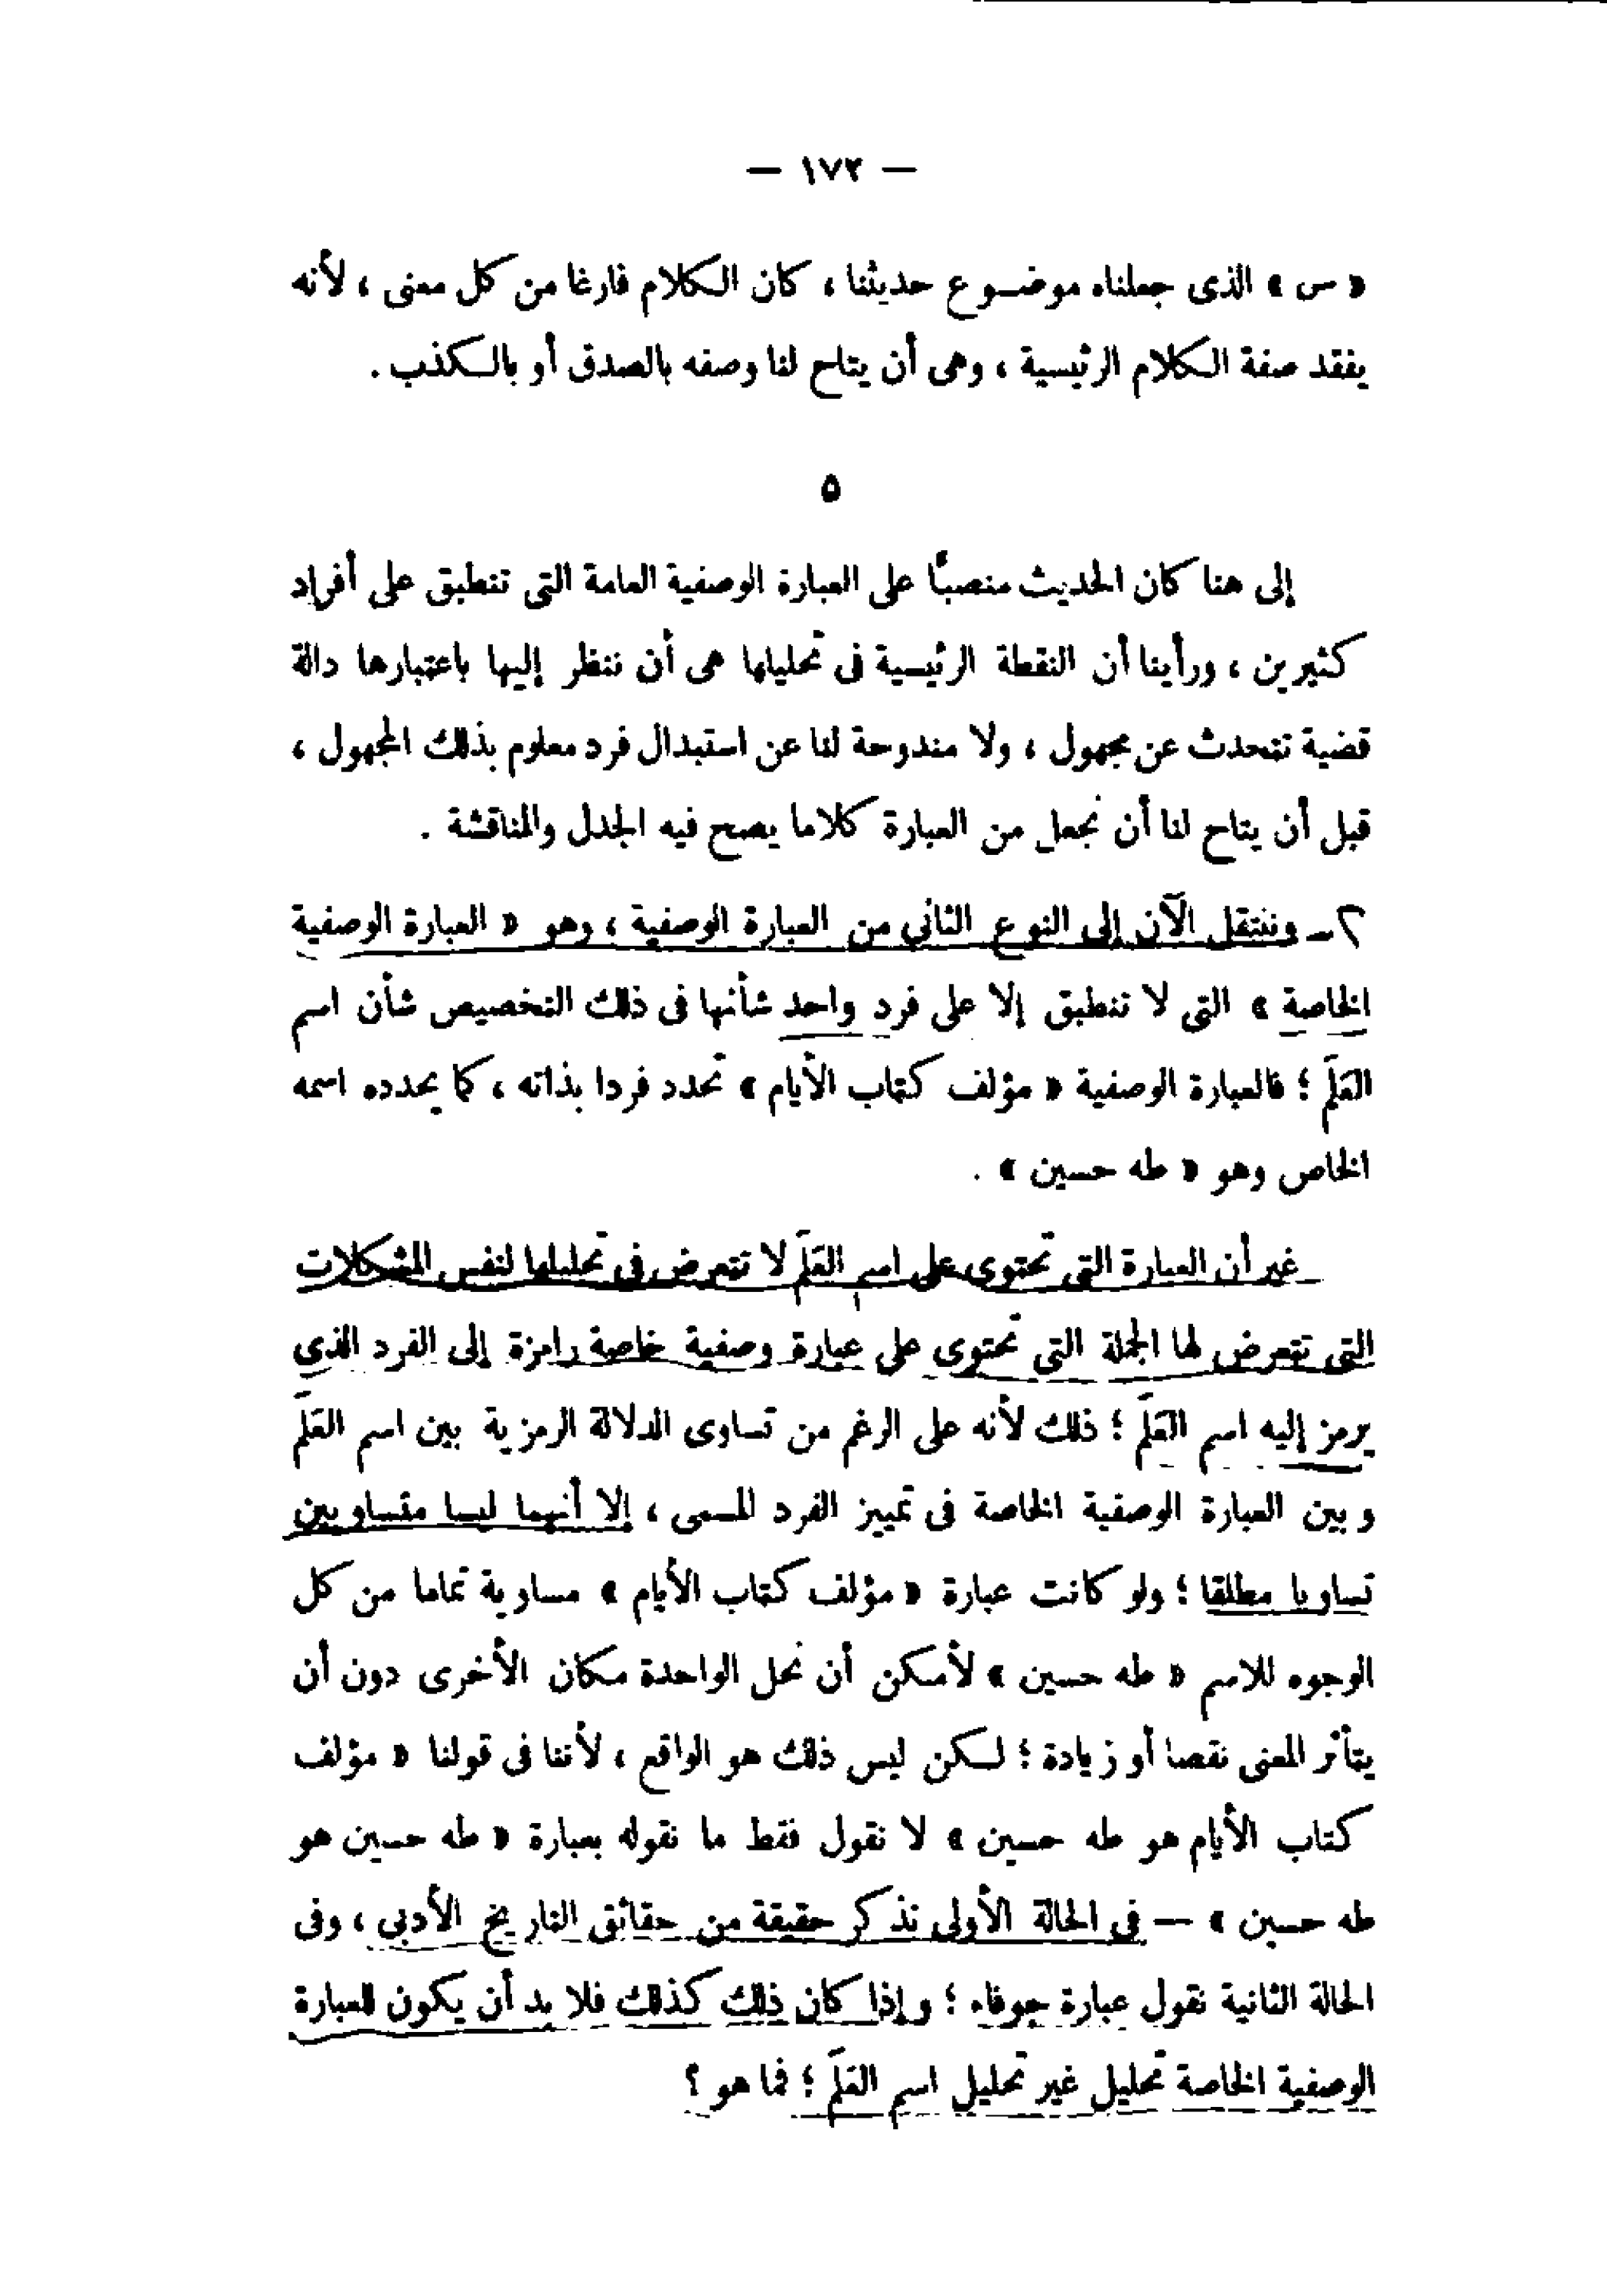 — ١٧٢ —
« س » الذى جعلناه موضوع حديثنا ، كان الكلام فارغا من كل معنى ، لأنه
يفقد صفة الكلام الرئيسية ، وهى أن يتاح لنا وصفه بالصدق أو بالكذب .
٥
إلى هنا كان الحديث منصبًّا على العبارة الوصفية العامة التى تنطبق على أفراد
كثيرين ، ورأينا أن النقطة الرئيسية فى تحليلها هى أن ننظر إليها باعتبارها دالة
قضية تتحدث عن مجهول ، ولا مندوحة لنا عن استبدال فرد معلوم بذلك المجهول ،
قبل أن يتاح لنا أن نجعل من العبارة كلاما يصح فيه الجدل والمناقشة .
٢ـ وننتقل الآن إلى النوع الثانى من العبارة الوصفية ، وهو « العبارة الوصفية
الخاصة » التى لا تنطبق إلا على فرد واحد شأنها فى ذلك التخصيص شأن اسم
العَلَم ؛ فالعبارة الوصفية « مؤلف كتاب الأيام » تحدد فردا بذاته ، كما يحدده اسمه
الخاص وهو « طه حسين » .
غير أن العبارة التى تحتوى على اسم العَلَم لا تتعرض فى تحليلها لنفس المشكلات
التى تتعرض لها الجملة التى تحتوى على عبارة وصفية خاصة رامزة إلى الفرد الذى
يرمز إليه اسم العَلَم ؛ ذلك لأنه على الرغم من تساوى الدلالة الرمزية بين اسم العَلَم
وبين العبارة الوصفية الخاصة فى تمييز الفرد المسمى ، إلا أنهما ليسا متساويين
تساويا مطلقا ؛ ولو كانت عبارة « مؤلف كتاب الأيام » مساوية تماما من كل
الوجوه للاسم « طه حسين » لأمكن أن نحل الواحدة مكان الأخرى دون أن
يتأثر المعنى نقصا أو زيادة ؛ لكن ليس ذلك هو الواقع ، لأننا فى قولنا « مؤلف
كتاب الأيام هو طه حسين » لا نقول فقط ما نقوله بعبارة « طه حسين هو
طه حسين » — فى الحالة الأولى نذكر حقيقة من حقائق التاريخ الأدبى ، وفى
الحالة الثانية نقول عبارة جوفاء ؛ وإذا كان ذلك كذلك فلا بد أن يكون للعبارة
الوصفية الخاصة تحليل غير تحليل اسم العَلَم ؛ فما هو ؟